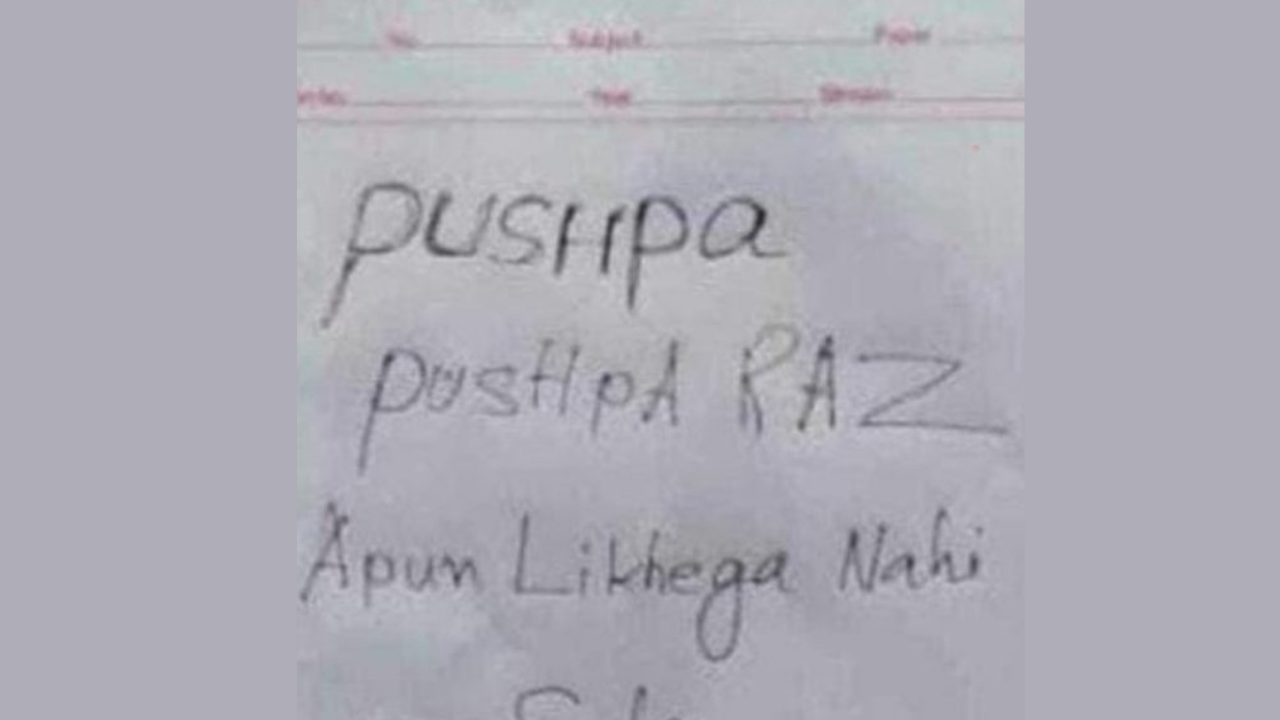 No. Subject Paper
Year
pusHpa
pusHpA RAZ
Apun Likhega Nahi